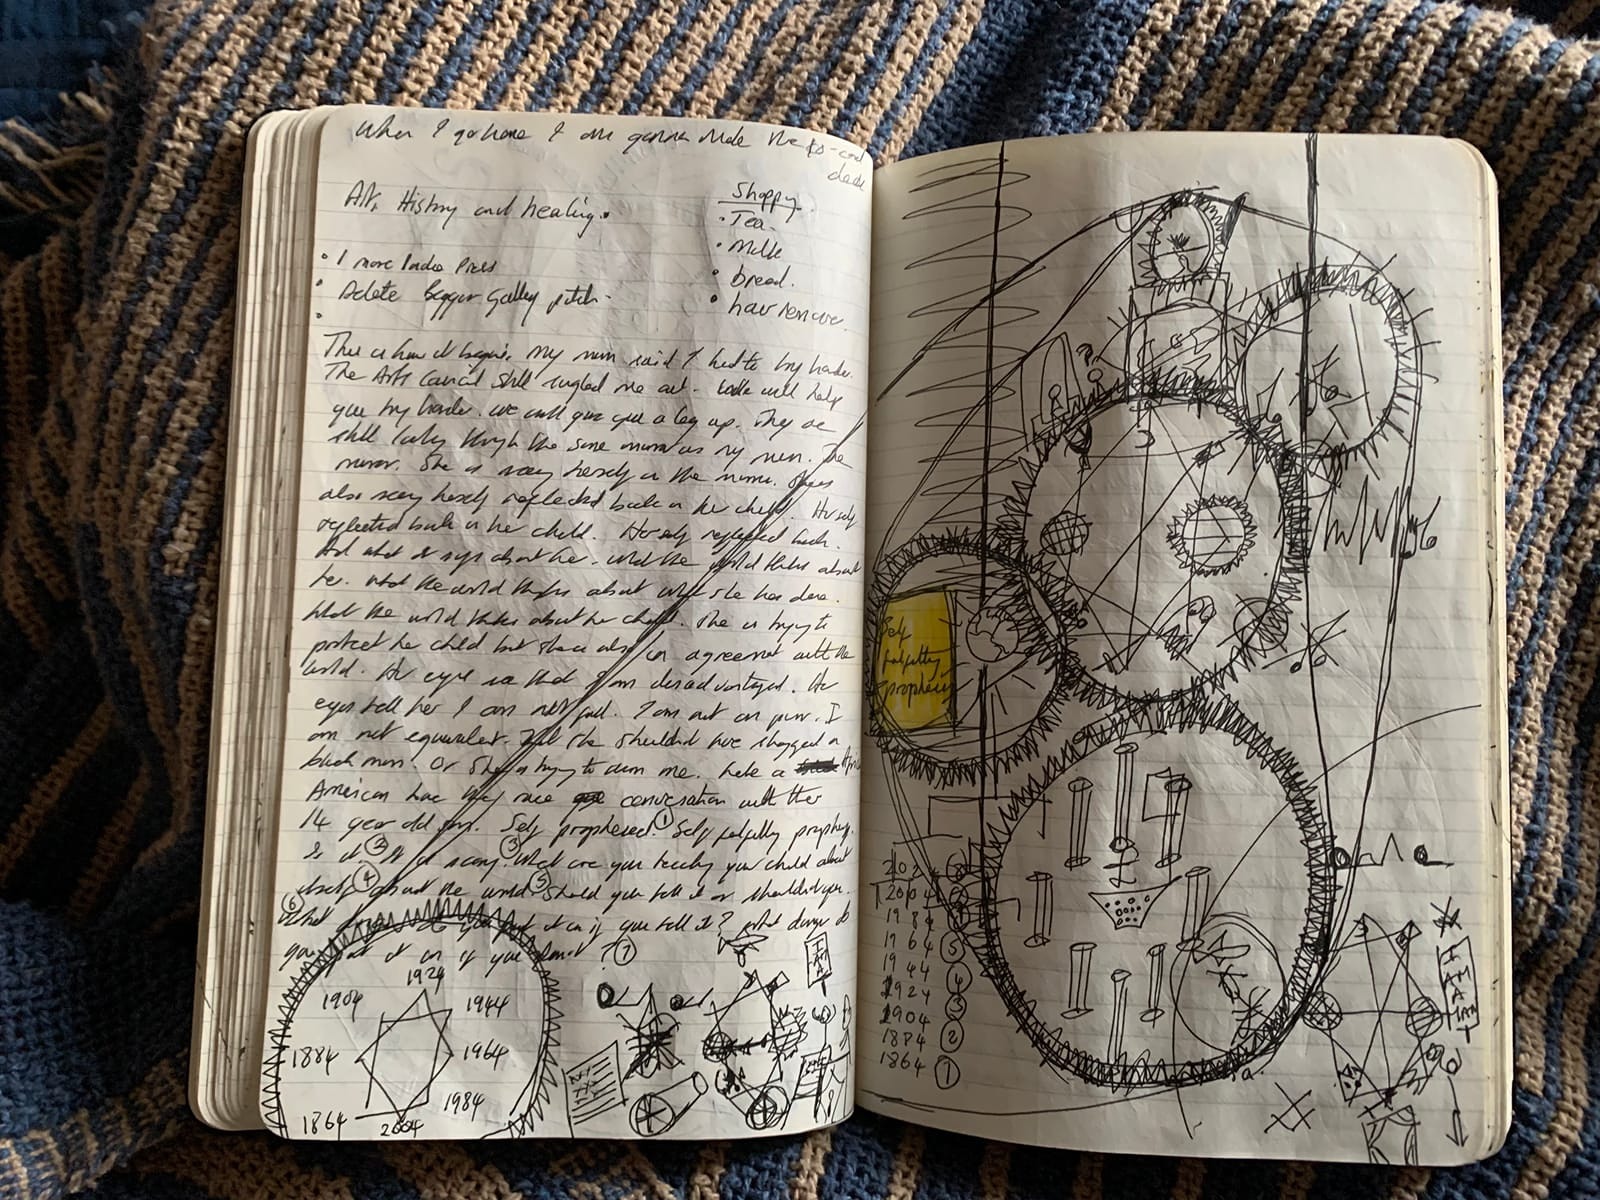 When I go home I am gonna make the
Art, History and healing.
Shoppy
• Tea
• Milk
• bread.
• hair remover
• 1 more Indie Pixels
• Delete Beggar Gallery pitch.
This is how it begins. My mum said I had to try harder.
The Arts Council still singled me out. We will help
you try harder. We will give you a leg up. They are
still looking through the same mirror as my mum. The
mirror. She is seeing herself in the mirror. She is
also seeing herself reflected back in her child. Herself
reflected back in her child. Herself reflected back.
And what it says about her. What the world thinks about
her. What the world thinks about what she has done.
What the world thinks about her child. She is trying to
protect her child but she is also in agreement with the
world. Her eyes see that I am disadvantaged. Her
eyes tell her I am not full. I am not on par. I
am not equivalent. That she shouldnt have shagged a
black man. Or she is trying to arm me. Like a
American have they race conversation with their
14 year old son. Self prophesied. ① Self fulfilling prophesy.
Is it ② ③ What are you teaching your child about
itself ④ about the world ⑤ Should you tell it or shouldnt you.
⑥ What do you put it on if you tell it? what danger do
you put it on if you dont? ⑦
1924
1904 1944
1884 1964
1984
1864 2004
Self
fulfilling
prophesy
202
2004
1984
1964 ⑤
1944 ④
1924 ③
1904 ②
1884 ②
1864 ①